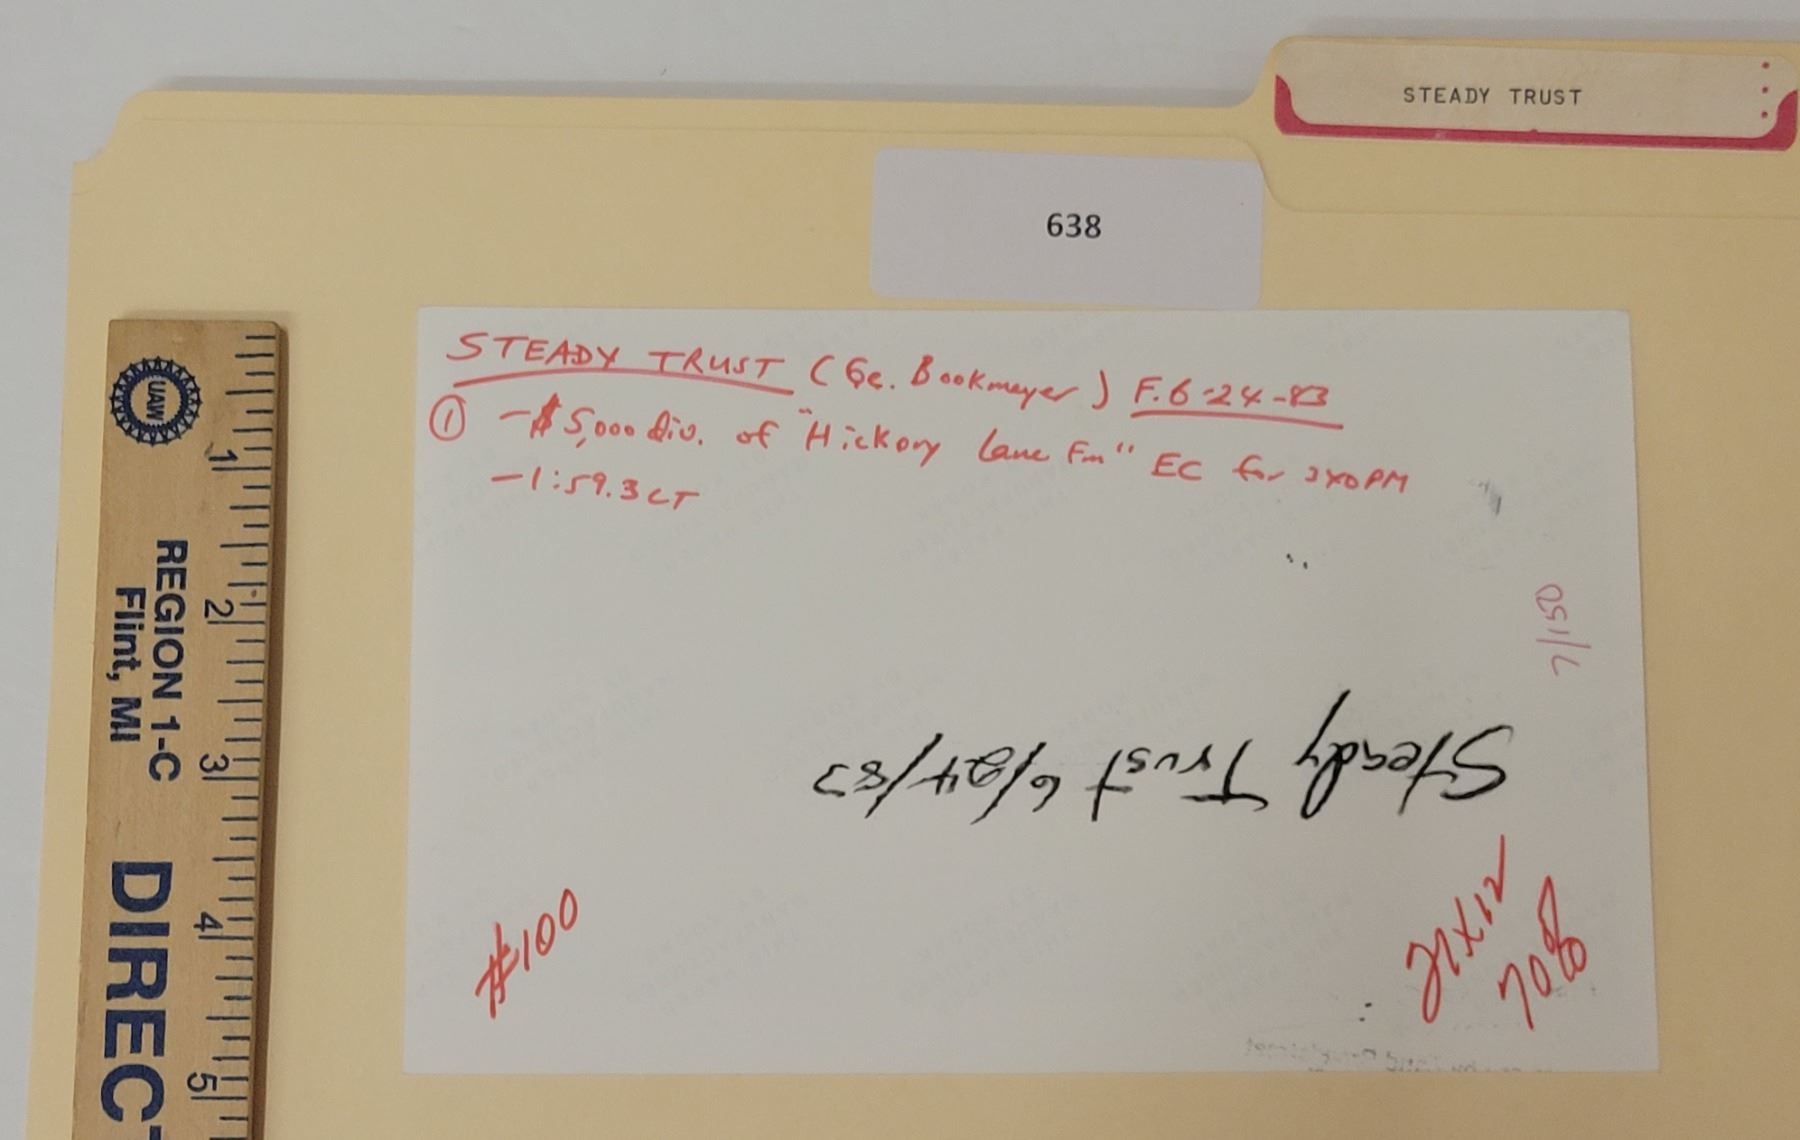 STEADY TRUST
638
STEADY TRUST (Ge. Bookmeyer) F. 6-24-83
① -$5,000 div. of "Hickory Lane Fm" EC for 3YO PM
-1:59.3 CT
7/150
Steady Trust 6/24/83
$100
21x12
70%
UAW
REGION 1-C
Flint, MI
DIREC
1
2
3
4
5